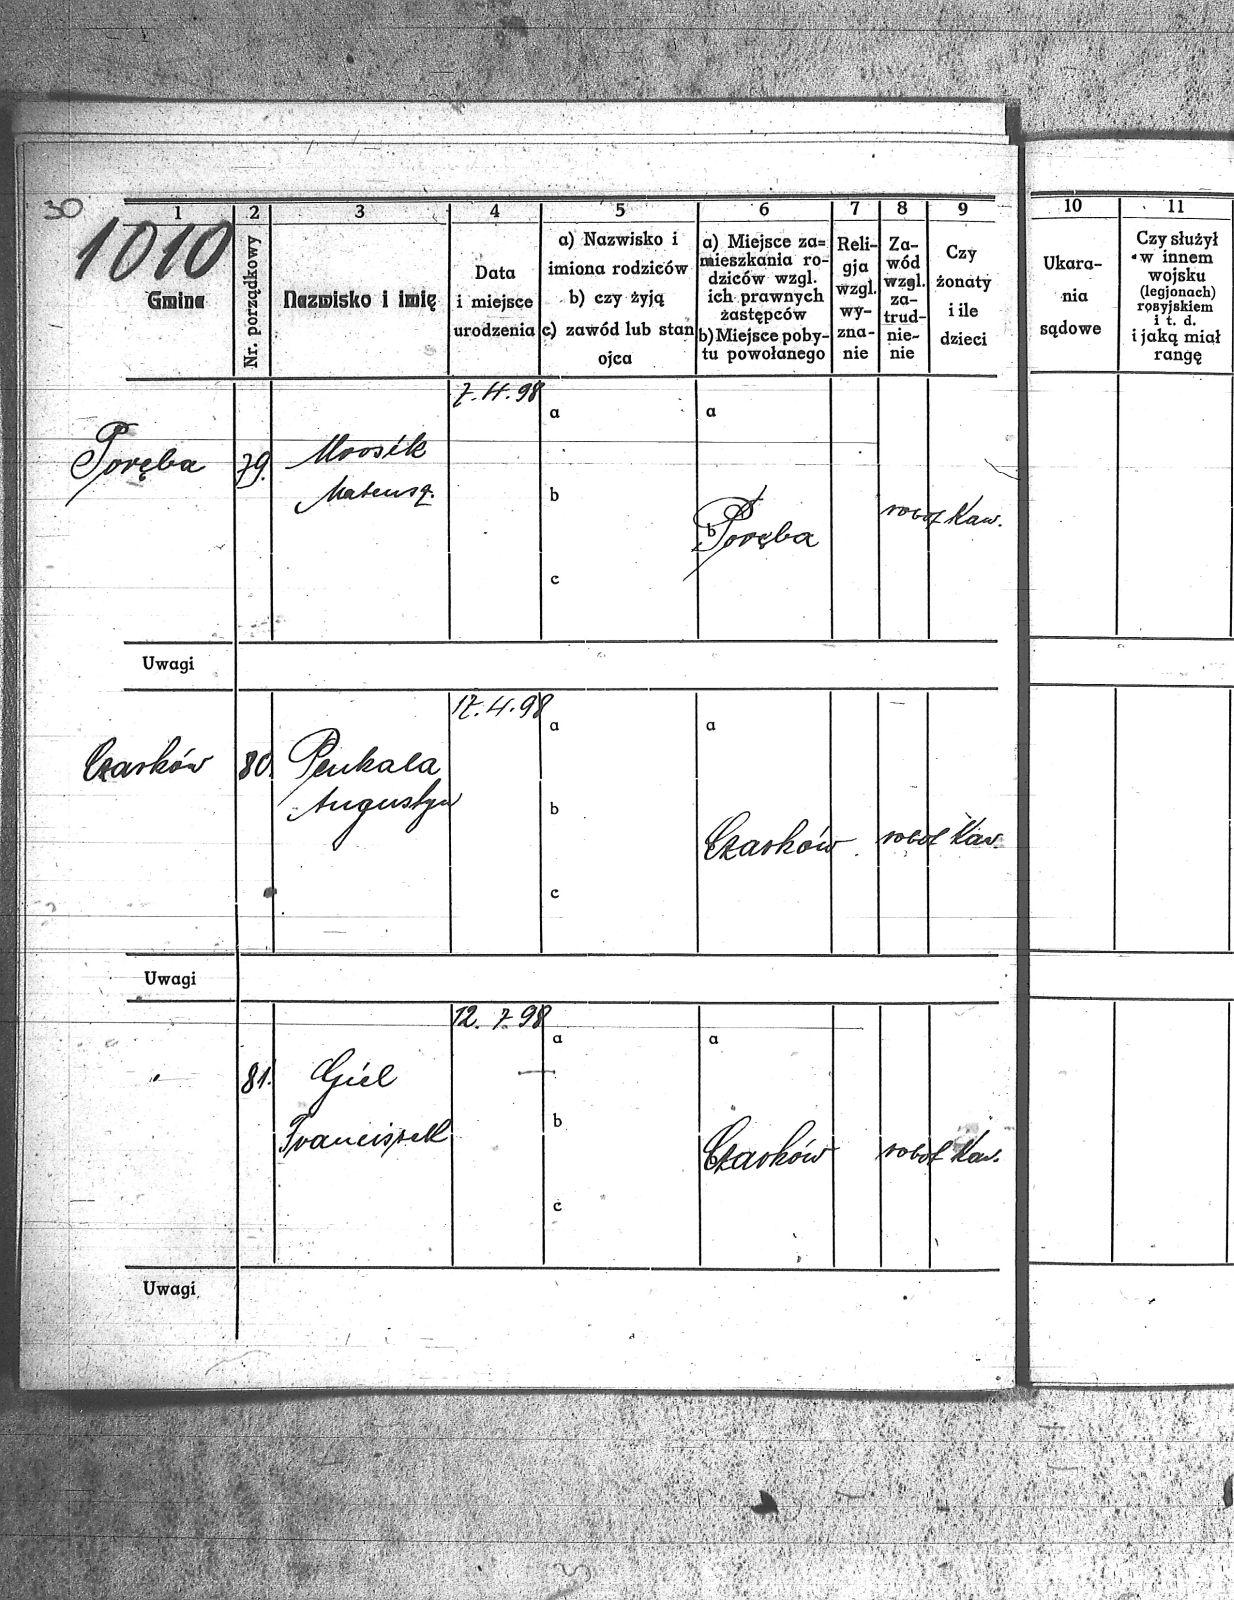 30
1010
1 2 3 4 5 6 7 8 9 10 11
Gmina
Nr. porządkowy
Nazwisko i imię
Data
i miejsce
urodzenia
a) Nazwisko i
imiona rodziców
b) czy żyją
c) zawód lub stan
ojca
a) Miejsce za=
mieszkania ro-
dziców wzgl.
ich prawnych
zastępców
b) Miejsce poby-
tu powołanego
Reli-
gja
wzgl.
wy-
zna-
nie
Za-
wód
wzgl.
za-
trud-
nie-
nie
Czy
żonaty
i ile
dzieci
Ukara-
nia
sądowe
Czy służył
w innem
wojsku
(legjonach)
rosyjskiem
i t. d.
i jaką miał
rangę
7.4.98
a a
Poręba 79. Mrosik
Mateusz
b
b Poręba robot Kaw.
c
Uwagi
17.4.98
a a
Czarków 80. Penkala
Augustyn
b
Czarków robot Kaw.
c
Uwagi
12.7.98
a a
" 81. Giel
Franciszek
b
Czarków robot Kaw.
c
Uwagi